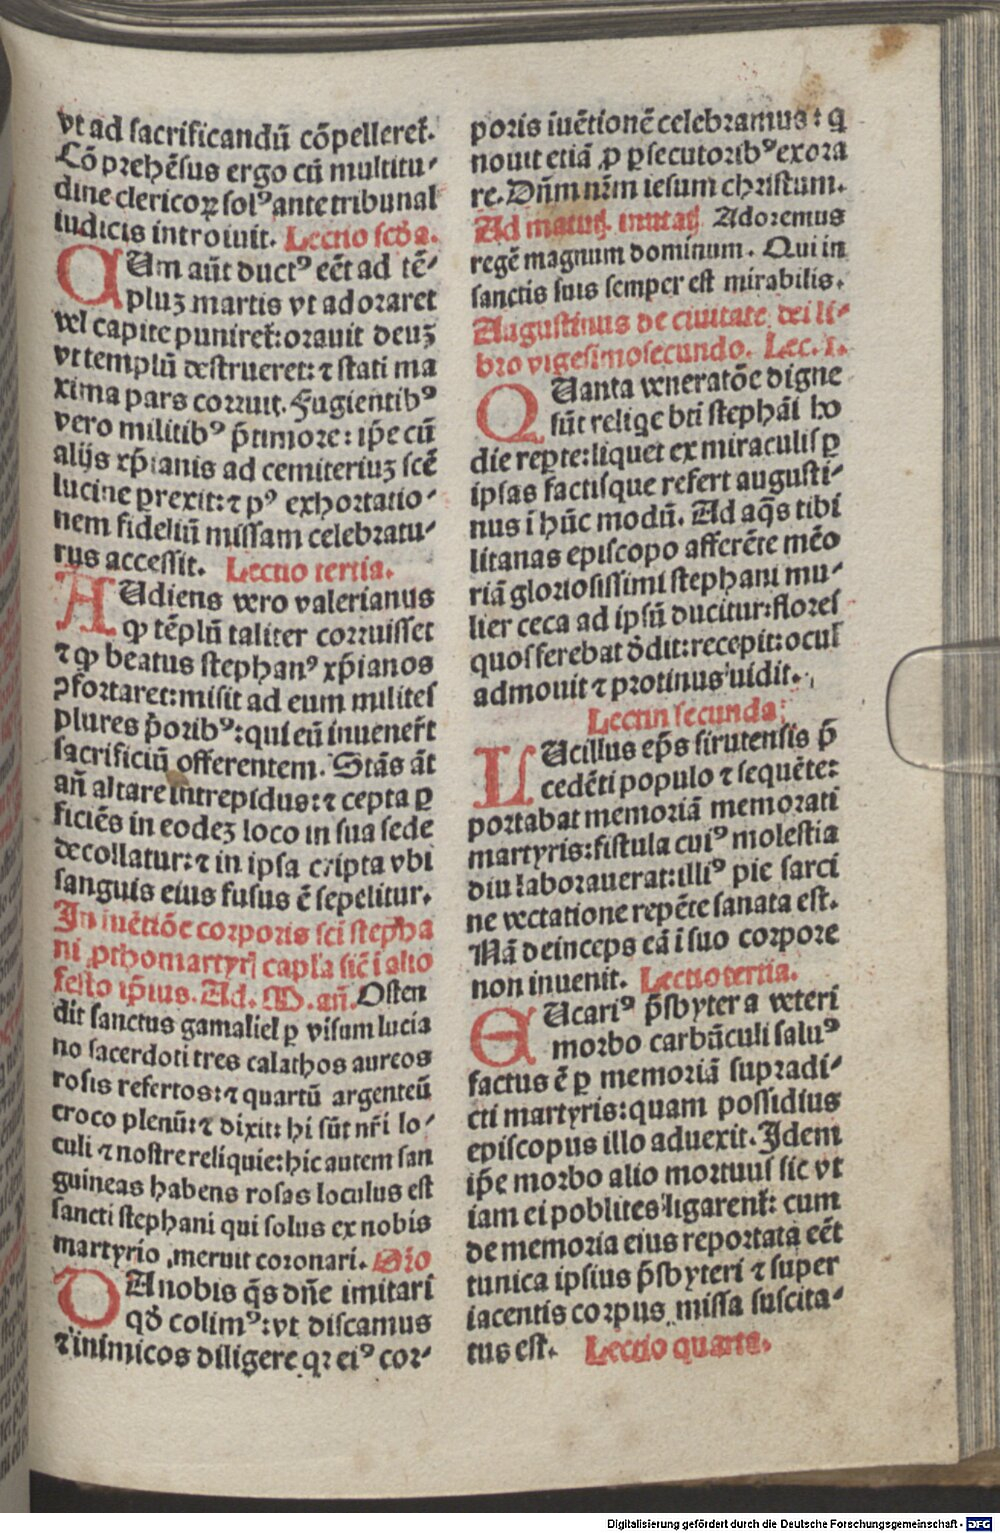 vt ad sacrificandū cōpelleret̄.
Cōprehēsus ergo cū multitu⸗
dine clericoꝝ solꝰ ante tribunal
iudicis introiuit. Lectio scd̄a.
CUm aūt ductꝰ eēt ad tē⸗
pluꝫ martis vt adoraret
vel capite puniret̄: orauit deuꝫ
vt templū destrueret: ⁊ stati ma
xima pars corruit. Fugientibꝰ
vero militibꝰ p̄ timore: ip̄e cū
alijs xp̄ianis ad cemiteriuꝫ scē
lucine perexit: ⁊ pꝰ exhortatio⸗
nem fideliū missam celebratu⸗
rus accessit. Lectio tertia.
AUdiens vero valerianus
ꝙ tēplū taliter corruisset
⁊ ꝙ beatus stephanꝰ xp̄ianos
ꝯfortaret: misit ad eum milites
plures p̄oribꝰ: qui eū inuener̄t
sacrificiū offerentem. Stās āt
an̄ altare intrepidus: ⁊ cepta ꝑ
ficiēs in eodeꝫ loco in sua sede
decollatur: ⁊ in ipsa cripta vbi
sanguis eius fusus ē sepelitur.
In inuētiōe corporis sci stepha
ni ꝓthomartyrꝭ capl̄a sic̄ i alio
festo ip̄ius. Ad. M. an̄. Osten
dit sanctus gamaliel ꝑ visum lucia
no sacerdoti tres calathos aureos
rosis refertos: ⁊ quartū argenteū
croco plenū: ⁊ dixit: hi sūt nr̄i lo⸗
culi ⁊ nostre reliquie: hic autem san
guineas habens rosas loculus est
sancti stephani qui solus ex nobis
martyrio meruit coronari. Or̄o
DA nobis q̄s dn̄e imitari
qd̄ colimꝰ: vt discamus
⁊ inimicos diligere qꝛ eiꝰ cor⸗
poris iuētionē celebramus: q
nouit etiā ꝓ ꝑsecutoribꝰ exora
re. Dn̄m nr̄m iesum christum.
Ad matuꝭ. inuitaꝭ Adoremus
regē magnum dominum. Qui in
sanctis suis semper est mirabilis.
Augustinus de ciuitate dei li⸗
bro vigesimosecundo. Lec. I.
QUanta veneratōe digne
sūt reliqe bti stephāi ho
die rep̱te: liquet ex miraculis ꝑ
ipsas factis que refert augusti⸗
nus i hūc modū. Ad aq̄s tibi
litanas episcopo afferēte mēo
riā gloriosissimi stephani mu⸗
lier ceca ad ipsū ducitur: flores
quos ferebat d̄dit: recepit: ocul̄
admouit ⁊ protinus uidit.
Lectin secunda
LUcillus ep̄s sirutensis p̄
cedēti populo ⁊ sequēte:
portabat memoriā memorati
martyris: fistula cuiꝰ molestia
diu laborauerat: illiꝰ pie sarci
ne vectatione repēte sanata est.
Nā deinceps eā i suo corpore
non inuenit. Lectio tertia.
EUcariꝰ p̄sbyter a veteri
morbo carbūculi saluꝰ
factus ē ꝑ memoriā supradi⸗
cti martyris: quam possidius
episcopus illo aduexit. Idem
ip̄e morbo alio mortuus sic vt
iam ei poblites ligarent̄: cum
de memoria eius reportata eēt
tunica ipsius p̄sbyteri ⁊ super
iacentis corpus missa suscita⸗
tus est. Lectio quarta.
Digitalisierung gefördert durch die Deutsche Forschungsgemeinschaft - DFG